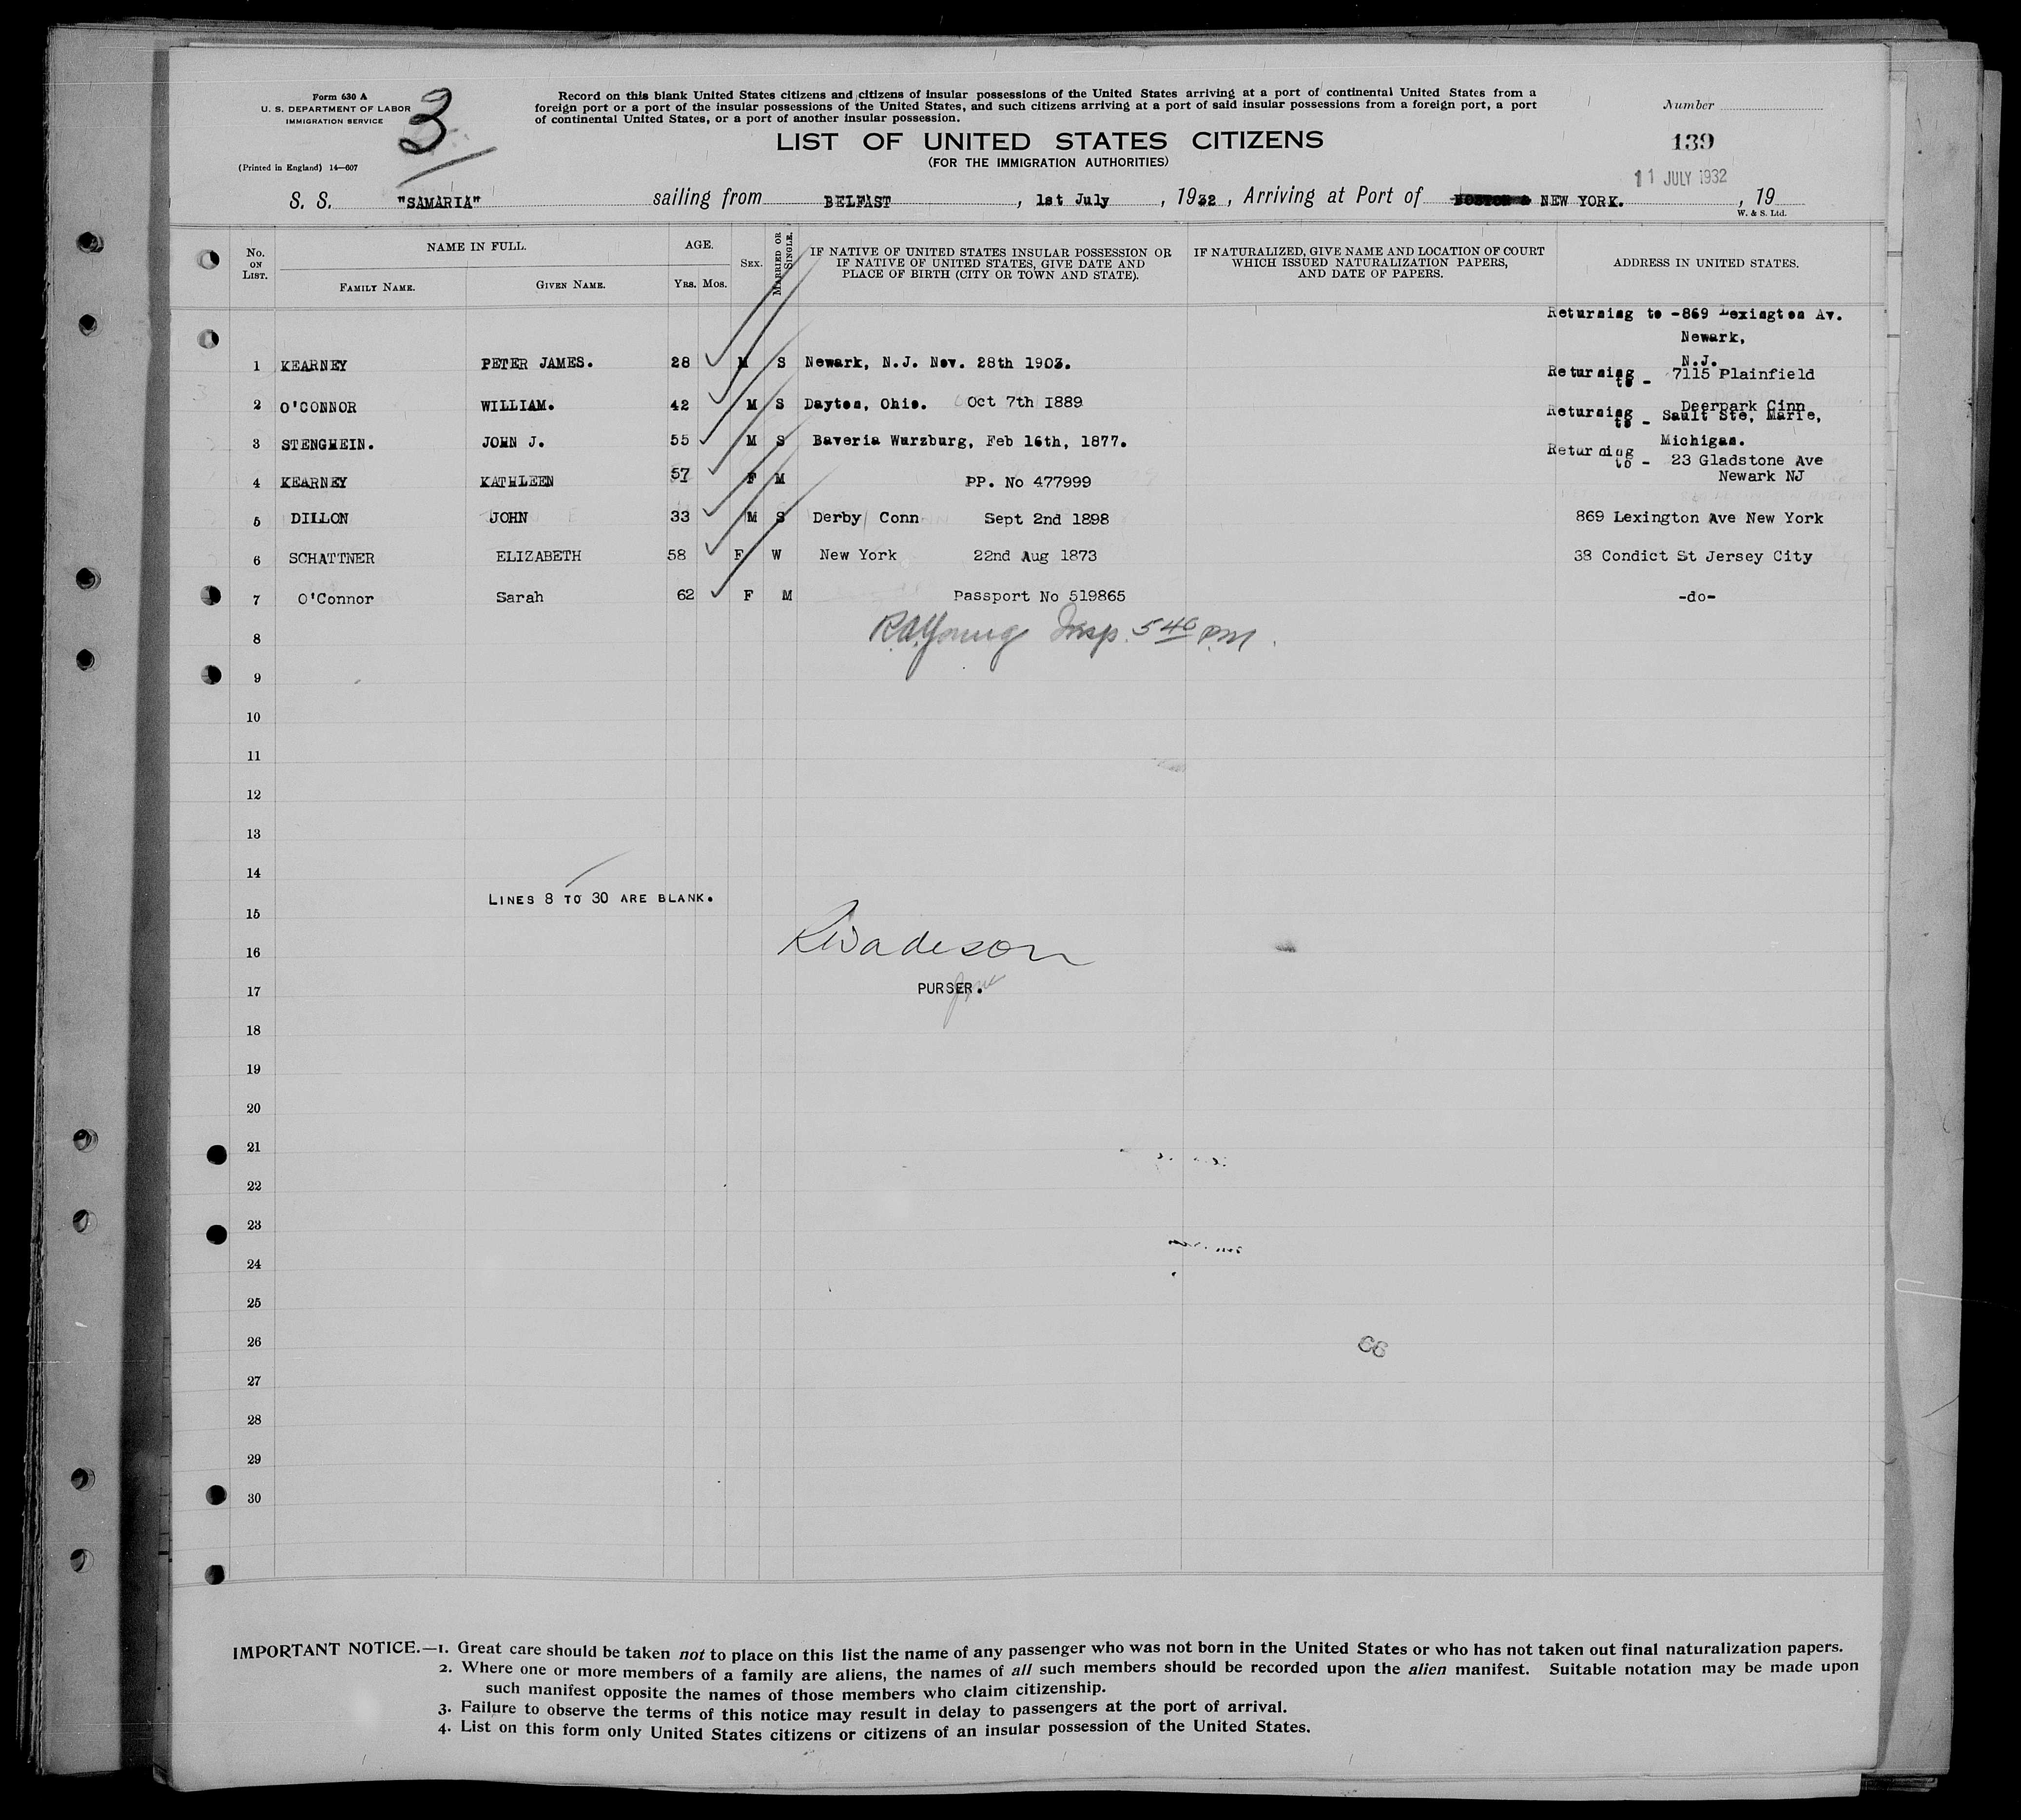 Form 630 A
U. S. DEPARTMENT OF LABOR
IMMIGRATION SERVICE
(Printed in England) 14—607
3
Record on this blank United States citizens and citizens of insular possessions of the United States arriving at a port of continental United States from a
foreign port or a port of the insular possessions of the United States, and such citizens arriving at a port of said insular possessions from a foreign port, a port
of continental United States, or a port of another insular possession.
LIST OF UNITED STATES CITIZENS
(FOR THE IMMIGRATION AUTHORITIES)
Number
139
11 JULY 1932
S. S. "SAMARIA" sailing from BELFAST , 1st July , 1932 , Arriving at Port of NEW YORK. , 19
W. & S. Ltd.
No. ON LIST.
NAME IN FULL.
FAMILY NAME. GIVEN NAME.
AGE.
YRS. MOS.
SEX.
MARRIED OR SINGLE.
IF NATIVE OF UNITED STATES INSULAR POSSESSION OR
IF NATIVE OF UNITED STATES, GIVE DATE AND
PLACE OF BIRTH (CITY OR TOWN AND STATE).
IF NATURALIZED, GIVE NAME AND LOCATION OF COURT
WHICH ISSUED NATURALIZATION PAPERS,
AND DATE OF PAPERS.
ADDRESS IN UNITED STATES.
Returning to -869 Lexington Av.
Newark,
N.J.
1 KEARNEY PETER JAMES. 28 M S Newark, N.J. Nov. 28th 1903.
Returning to - 7115 Plainfield
2 O'CONNOR WILLIAM. 42 M S Dayton, Ohio. Oct 7th 1889
Deerpark Cinn
Returning to - Sault Ste, Marie,
3 STENGHEIN. JOHN J. 55 M S Baveria Wurzburg, Feb 16th, 1877.
Michigan.
Returning to - 23 Gladstone Ave
Newark NJ
4 KEARNEY KATHLEEN 57 F M PP. No 477999
5 DILLON JOHN 33 M S Derby Conn Sept 2nd 1898 869 Lexington Ave New York
6 SCHATTNER ELIZABETH 58 F W New York 22nd Aug 1873 38 Condict St Jersey City
7 O'Connor Sarah 62 F M Passport No 519865 -do-
8 R.A.Young Insp. 5 40 P.M.
9
10
11
12
13
14
LINES 8 TO 30 ARE BLANK.
15
16
17 PURSER.
18
19
20
21
22
23
24
25
26
27
28
29
30
IMPORTANT NOTICE.—1. Great care should be taken not to place on this list the name of any passenger who was not born in the United States or who has not taken out final naturalization papers.
2. Where one or more members of a family are aliens, the names of all such members should be recorded upon the alien manifest. Suitable notation may be made upon
such manifest opposite the names of those members who claim citizenship.
3. Failure to observe the terms of this notice may result in delay to passengers at the port of arrival.
4. List on this form only United States citizens or citizens of an insular possession of the United States.